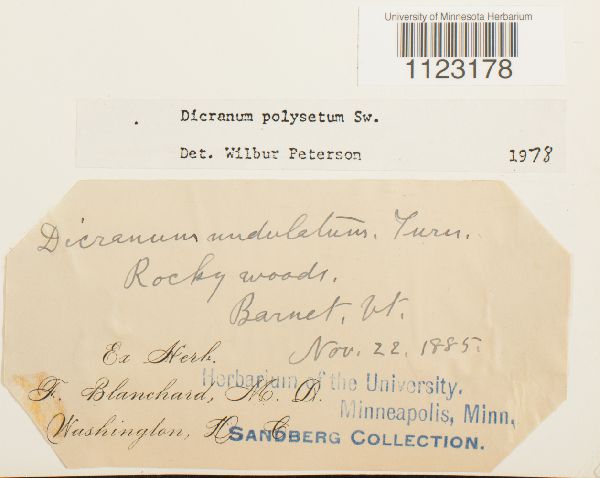 University of Minnesota Herbarium
1123178
. Dicranum polysetum Sw.
Det. Wilbur Peterson 1978
Dicranum undulatum. Turn.
Rocky woods.
Barnet, Vt.
Nov. 22, 1885.
Ex Herb.
F. Blanchard, M. D.
Washington, D. C.
Herbarium of the University.
Minneapolis, Minn,
SANDBERG COLLECTION.